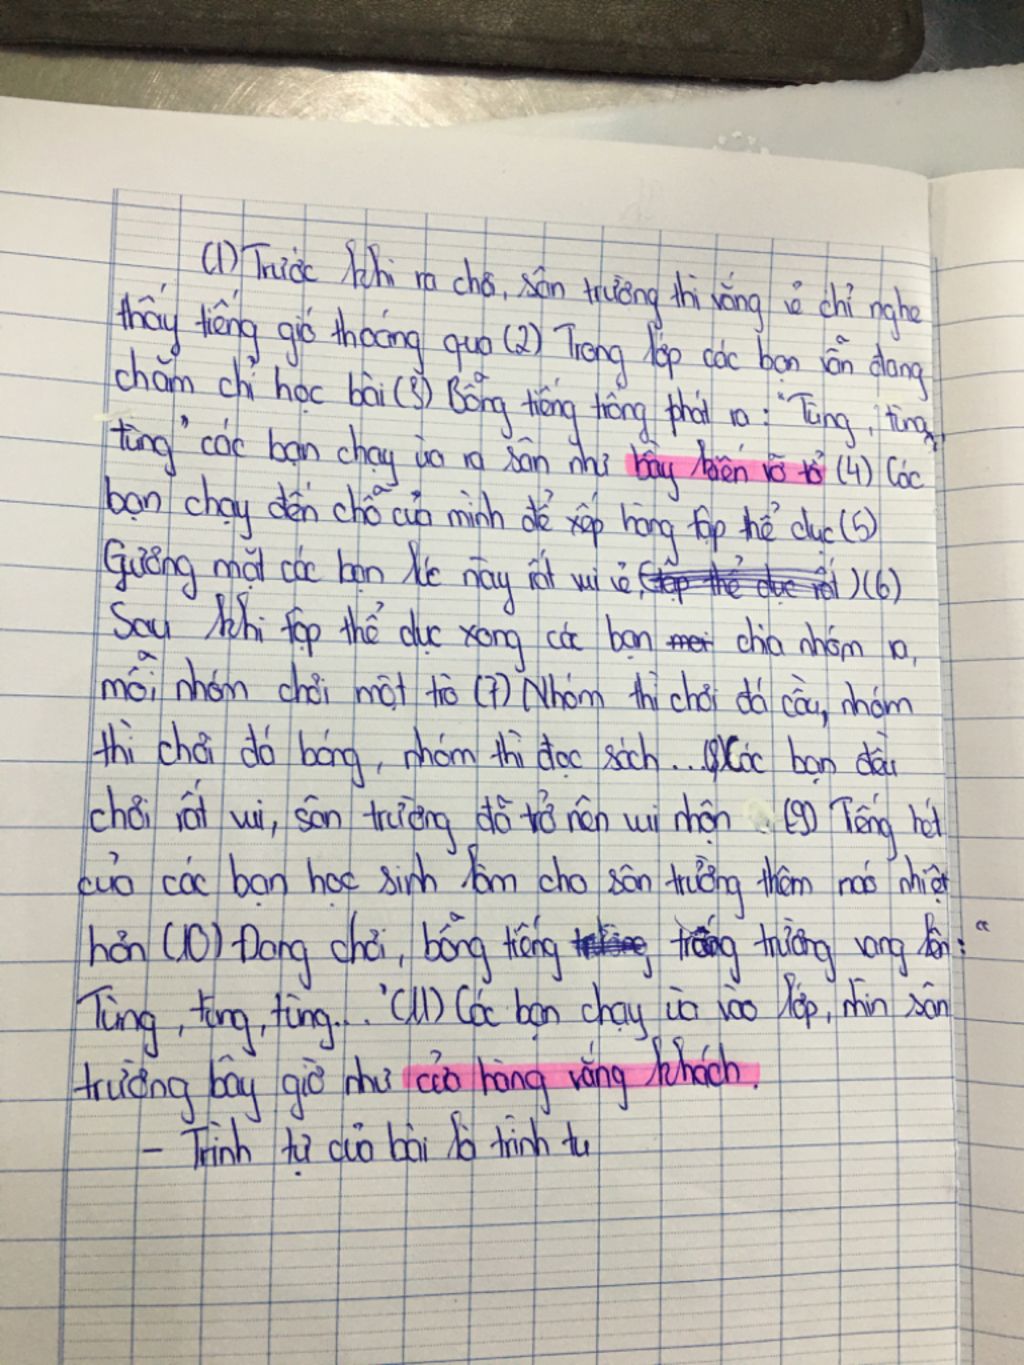 (1) Trước khi ra chơi, sân trường thì vắng vẻ chỉ nghe
thấy tiếng gió thoáng qua (2) Trong lớp các bạn vẫn đang
chăm chỉ học bài (3) Bỗng tiếng trống phát ra: "Tùng, tùng,
tùng" các bạn chạy ùa ra sân như bầy kiến vỡ tổ (4) Các
bạn chạy đến chỗ của mình để xếp hàng tập thể dục (5)
Gương mặt các bạn lúc này rất vui vẻ, (tập thể dục rất) (6)
Sau khi tập thể dục xong các bạn mới chia nhóm ra,
mỗi nhóm chơi một trò (7) Nhóm thì chơi đá cầu, nhóm
thì chơi đá bóng, nhóm thì đọc sách... (8) Các bạn đều
chơi rất vui, sân trường đã trở nên vui nhộn. (9) Tiếng hét
của các bạn học sinh làm cho sân trường thêm náo nhiệt
hơn (10) Đang chơi, bỗng tiếng trống trường vang lên: "
Tùng, tùng, tùng..." (11) Các bạn chạy ùa vào lớp, nhìn sân
trường bây giờ như cửa hàng vắng khách.
- Trình tự của bài là trình tự